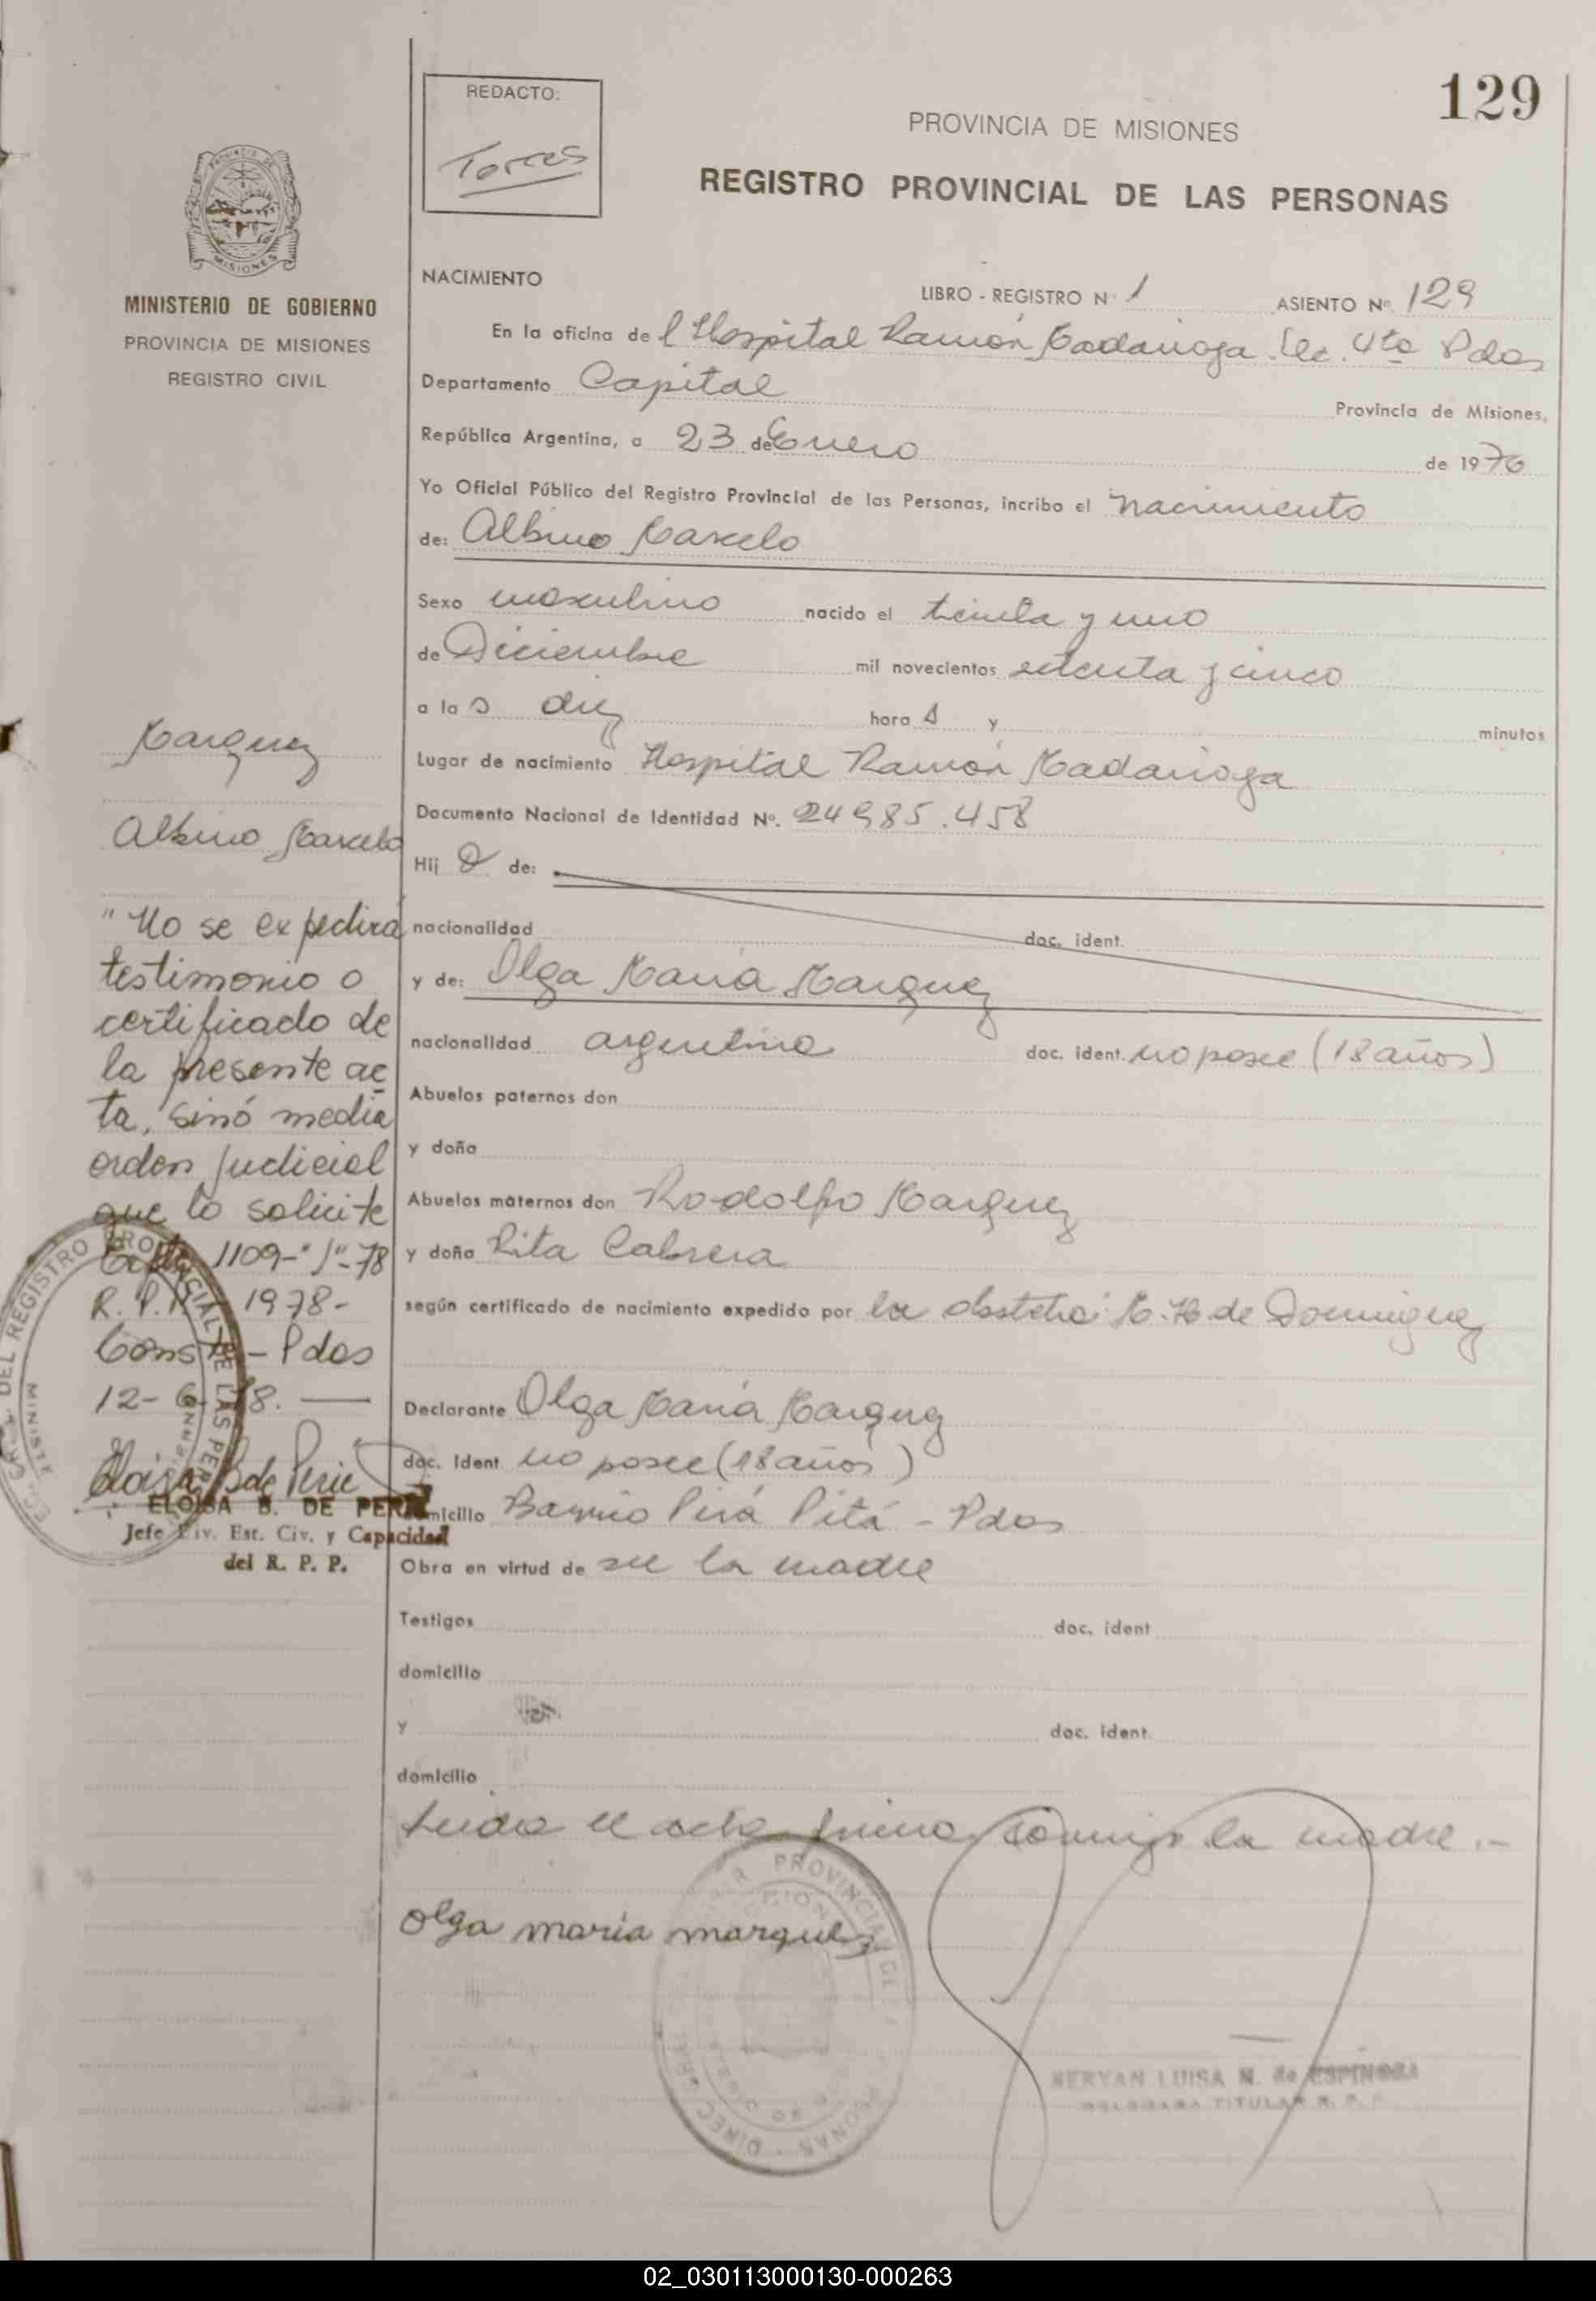 129
REDACTO:
Torres
PROVINCIA DE MISIONES
REGISTRO PROVINCIAL DE LAS PERSONAS
MINISTERIO DE GOBIERNO
PROVINCIA DE MISIONES
REGISTRO CIVIL
NACIMIENTO
LIBRO - REGISTRO Nº 1 ASIENTO Nº. 129
En la oficina del Hospital Ramón Madariaga Sec. 4ta Pdas
Departamento Capital Provincia de Misiones,
República Argentina, a 23 de Enero de 1976
Yo Oficial Público del Registro Provincial de las Personas, incribo el nacimiento
de: Albino Marcelo
Sexo masculino nacido el treinta y uno
de Diciembre mil novecientos setenta y cinco
a las diez horas y minutos
Lugar de nacimiento Hospital Ramón Madariaga
Documento Nacional de Identidad Nº. 24985.458
Hijo de:
nacionalidad doc. ident.
y de: Olga María Marquez
nacionalidad argentina doc. ident. no posee (18 años)
Abuelos paternos don
y doña
Abuelos maternos don Rodolfo Marquez
y doña Rita Cabrera
según certificado de nacimiento expedido por la obstetra: M. H de Dominguez
Declarante Olga María Marquez
doc. Ident no posee (18 años)
domicilio Barrio Pirá Pitá - Pdas
Obra en virtud de ser la madre
Testigos doc. ident
domicilio
y doc. ident.
domicilio
Leida el acta firma conmigo la madre.-
olga maria marquez
MERYAN LUISA M. de ESPINOSA
DELEGADA TITULAR R. P. P.
Marquez
Albino Marcelo
"No se expedirá
testimonio o
certificado de
la presente ac
ta, sinó media
orden judicial
que lo solicite
Expte 1109-"J"-78
R. P. P. 1978-
Const - Pdas
12-6-78.
ELOISA B. DE PERIE
Jefe Div. Est. Civ. y Capacidad
del R. P. P.
02_030113000130-000263